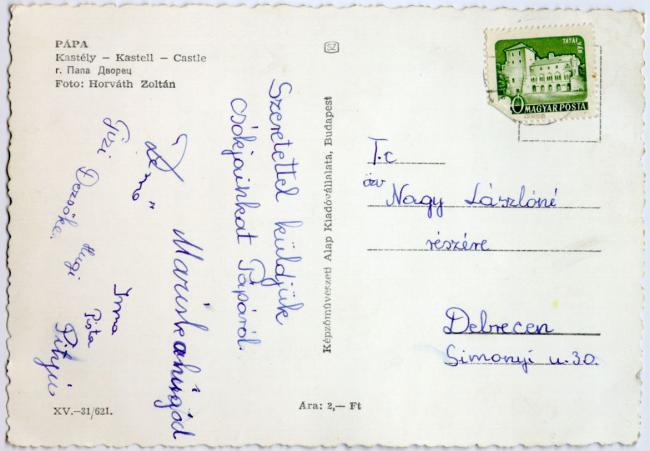 PÁPA
Kastély – Kastell – Castle
г. Папа Дворец
Foto: Horváth Zoltán
Szeretettel küldjük
csókjainkat Pápáról.
Mariskahúgod
Dezsőke
Hugi
Irma
Pista
XV.—31/621.
Képzőművészeti Alap Kiadóvállalata, Budapest
Ára: 2,— Ft
TATAI VÁR
MAGYAR POSTA
T.c
özv Nagy Lászlóné
részére
Debrecen
Simonyi u. 30.